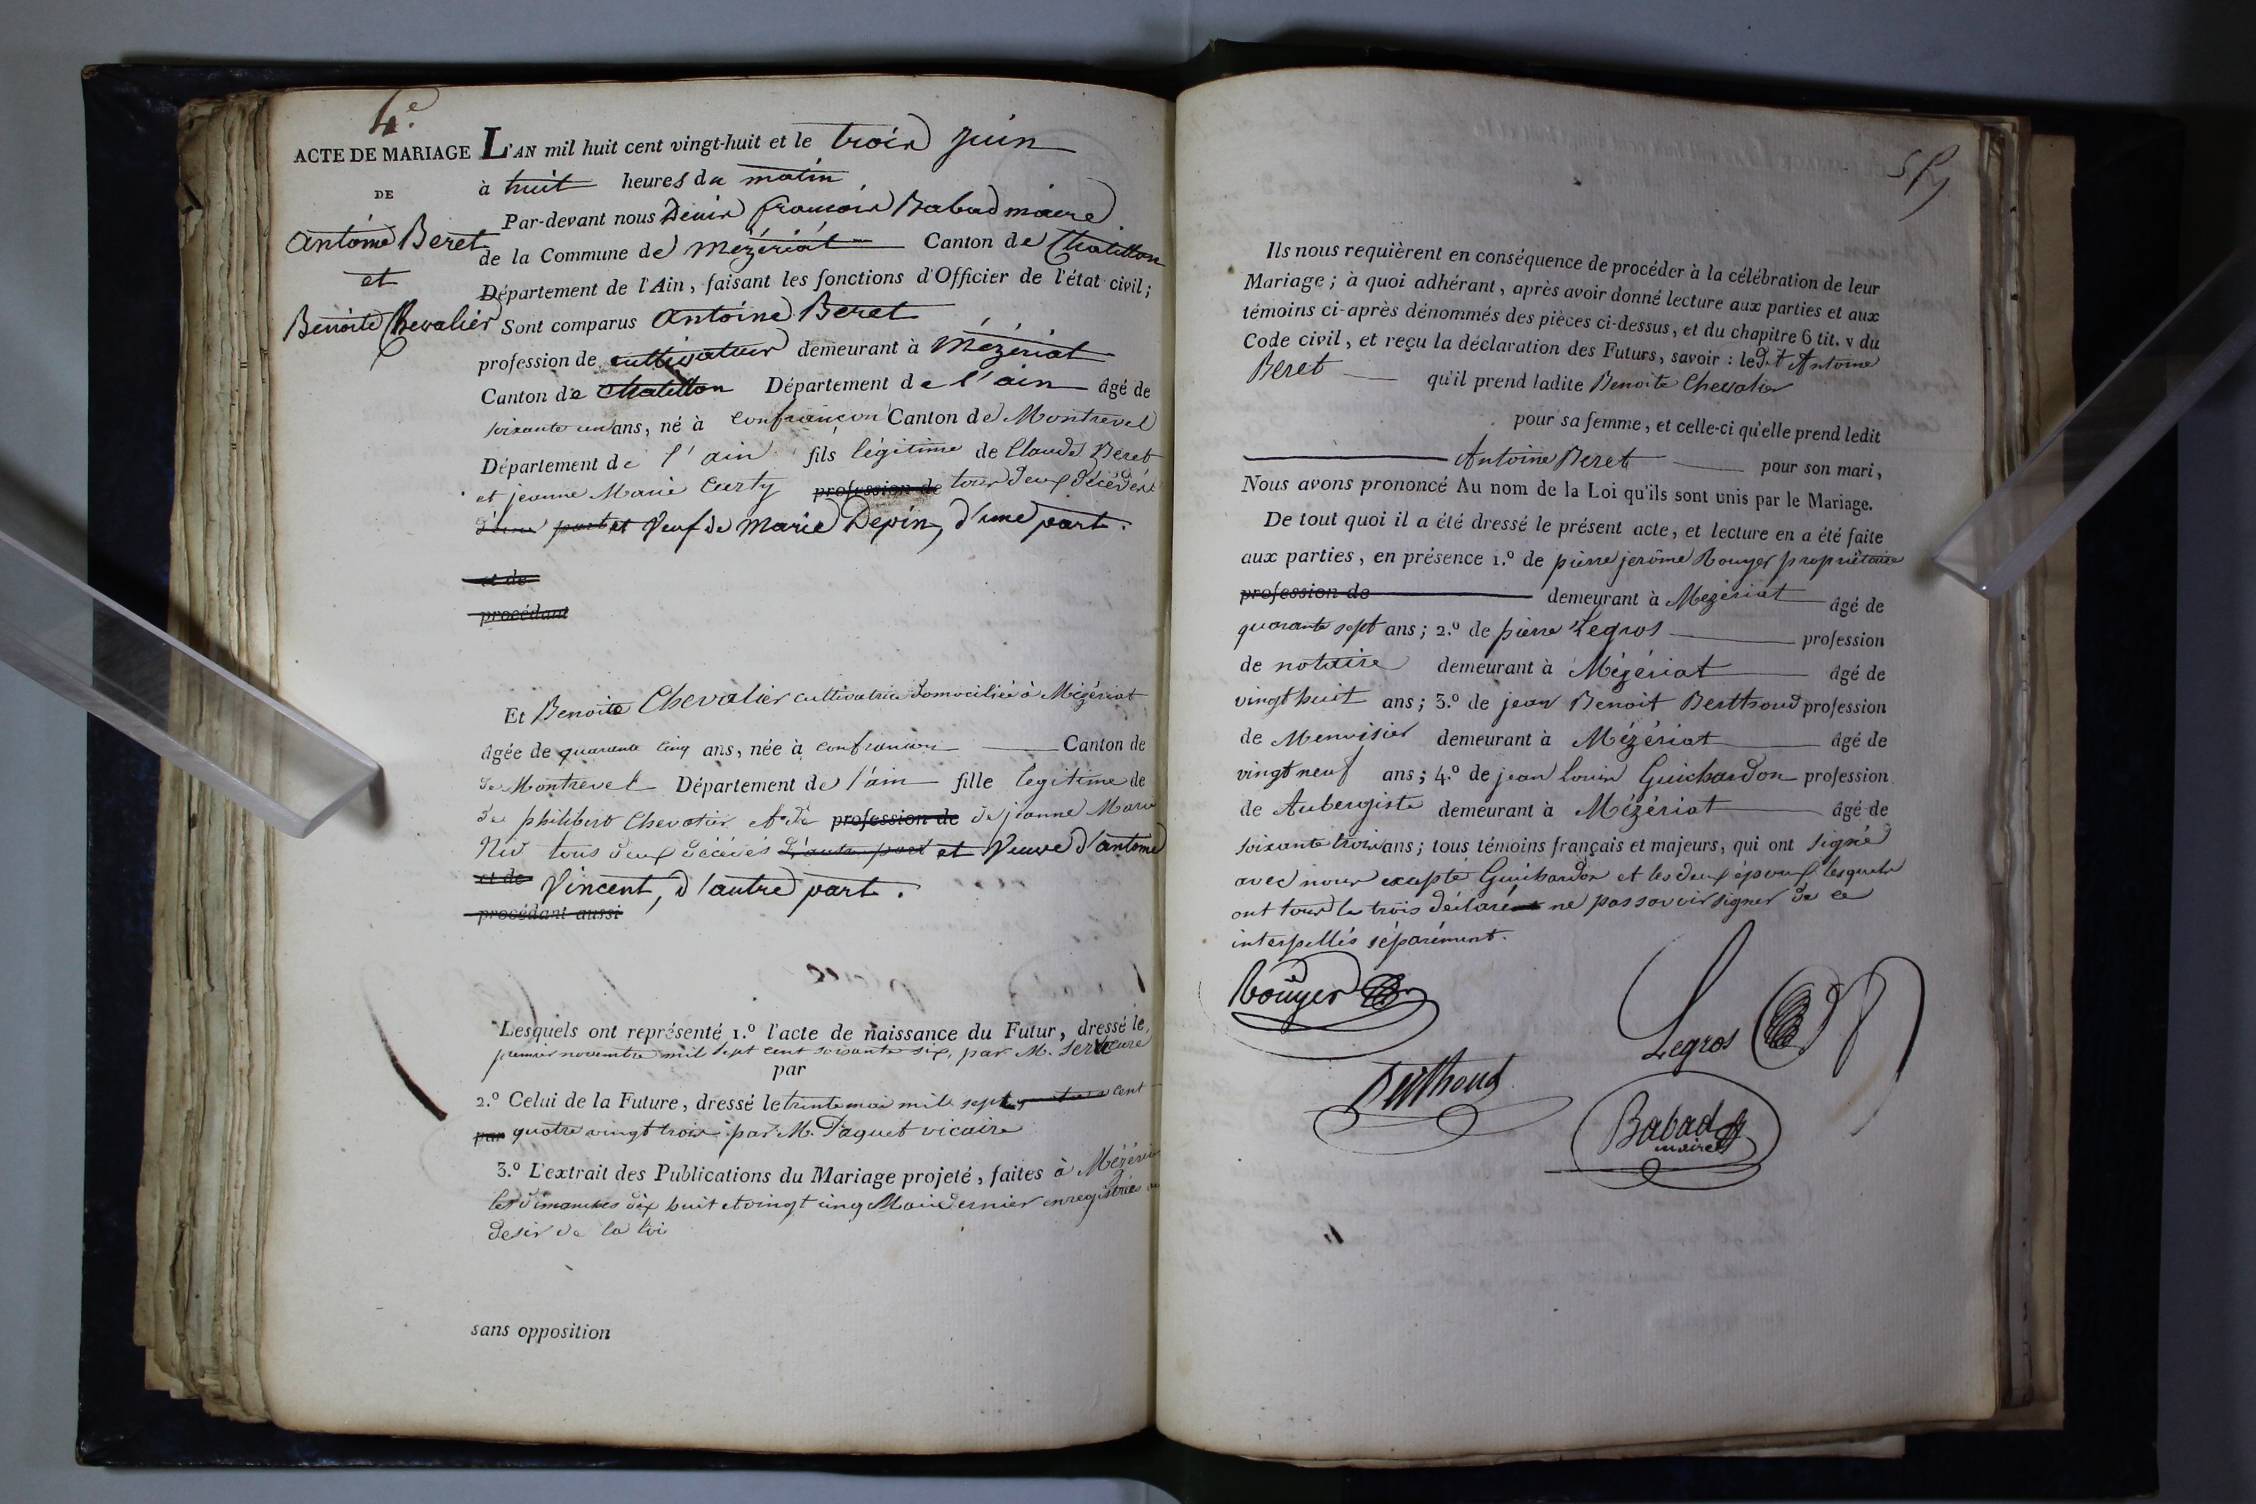 4.e
ACTE DE MARIAGE
DE
Antoine Beret
et
Benoite Chevalier
L'AN mil huit cent vingt-huit et le trois juin
à huit heures du matin
Par-devant nous Denis françois Babad maire
de la Commune de Mézériat Canton de Chatillon
Département de l'Ain, faisant les fonctions d'Officier de l'état civil;
Sont comparus Antoine Beret
profession de cultivateur demeurant à Mézériat
Canton de Chatillon Département de l'ain âgé de
soixante un ans, né à confrançon Canton de Montrevel
Département de l'ain fils légitime de Claude Beret
et jeanne Marie Curty profession de tous deux décédés
d'une part et Veuf de Marie Depin, d'une part.
et de
procédant
Et Benoite Chevalier cultivatrice domiciliée à Mézériat
âgée de quarante cinq ans, née à confrançon Canton de
de Montrevel Département de l'ain fille legitime de
de philibert Chevalier et de profession de de jeanne Marie
tous deux décédés d'autre part et Veuve d'antoine
et de Vincent, d'autre part.
procédant aussi
Lesquels ont représenté 1.º l'acte de naissance du Futur, dressé le
premier novembre mil sept cent soixante six, par M.
par
2.º Celui de la Future, dressé le trente mai mil sept cent
par quatre vingt trois par M. Paquet vicaire
3.º L'extrait des Publications du Mariage projeté, faites à Mézériat
les dimanches dix huit et vingt cinq Mai dernier enregistrées au
desir de la loi
sans opposition
Ils nous requièrent en conséquence de procéder à la célébration de leur
Mariage; à quoi adhérant, après avoir donné lecture aux parties et aux
témoins ci-après dénommés des pièces ci-dessus, et du chapitre 6 tit. v du
Code civil, et reçu la déclaration des Futurs, savoir: le d.t Antoine
Beret qu'il prend ladite Benoite Chevalier
pour sa femme, et celle-ci qu'elle prend ledit
Antoine Beret pour son mari,
Nous avons prononcé Au nom de la Loi qu'ils sont unis par le Mariage.
De tout quoi il a été dressé le présent acte, et lecture en a été faite
aux parties, en présence 1.º de pierre jerôme Rouyer propriétaire
profession de demeurant à Mézériat âgé de
quarante sept ans; 2.º de pierre Legros profession
de notaire demeurant à Mézériat âgé de
vingt huit ans; 3.º de jean Benoit Berthoud profession
de Menuisier demeurant à Mézériat âgé de
vingt neuf ans; 4.º de jean louis Guichardon profession
de Aubergiste demeurant à Mézériat âgé de
soixante trois ans; tous témoins français et majeurs, qui ont signé
avec nous excepté Guichardon et les deux époux lesquels
ont tous les trois déclaré ne pas savoir signer de ce
interpellés séparément.
Rouyer
Legros
Berthoud
Babad
maire